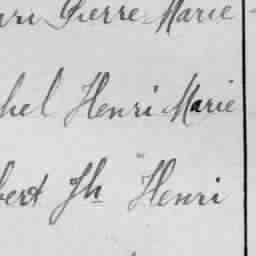 Pierre Marie
hel Henri Marie
bert Jh Henri